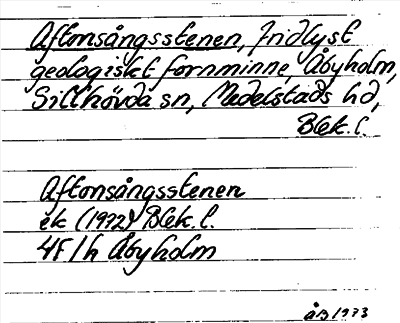 Aftonsångsstenen, fridlyst
geologiskt fornminne, Åbyholm,
Sillhövda sn, Medelstads hd,
Blek. l.
Aftonsångsstenen
ek (1972) Blek. l.
4F1h Åbyholm
åB 1973